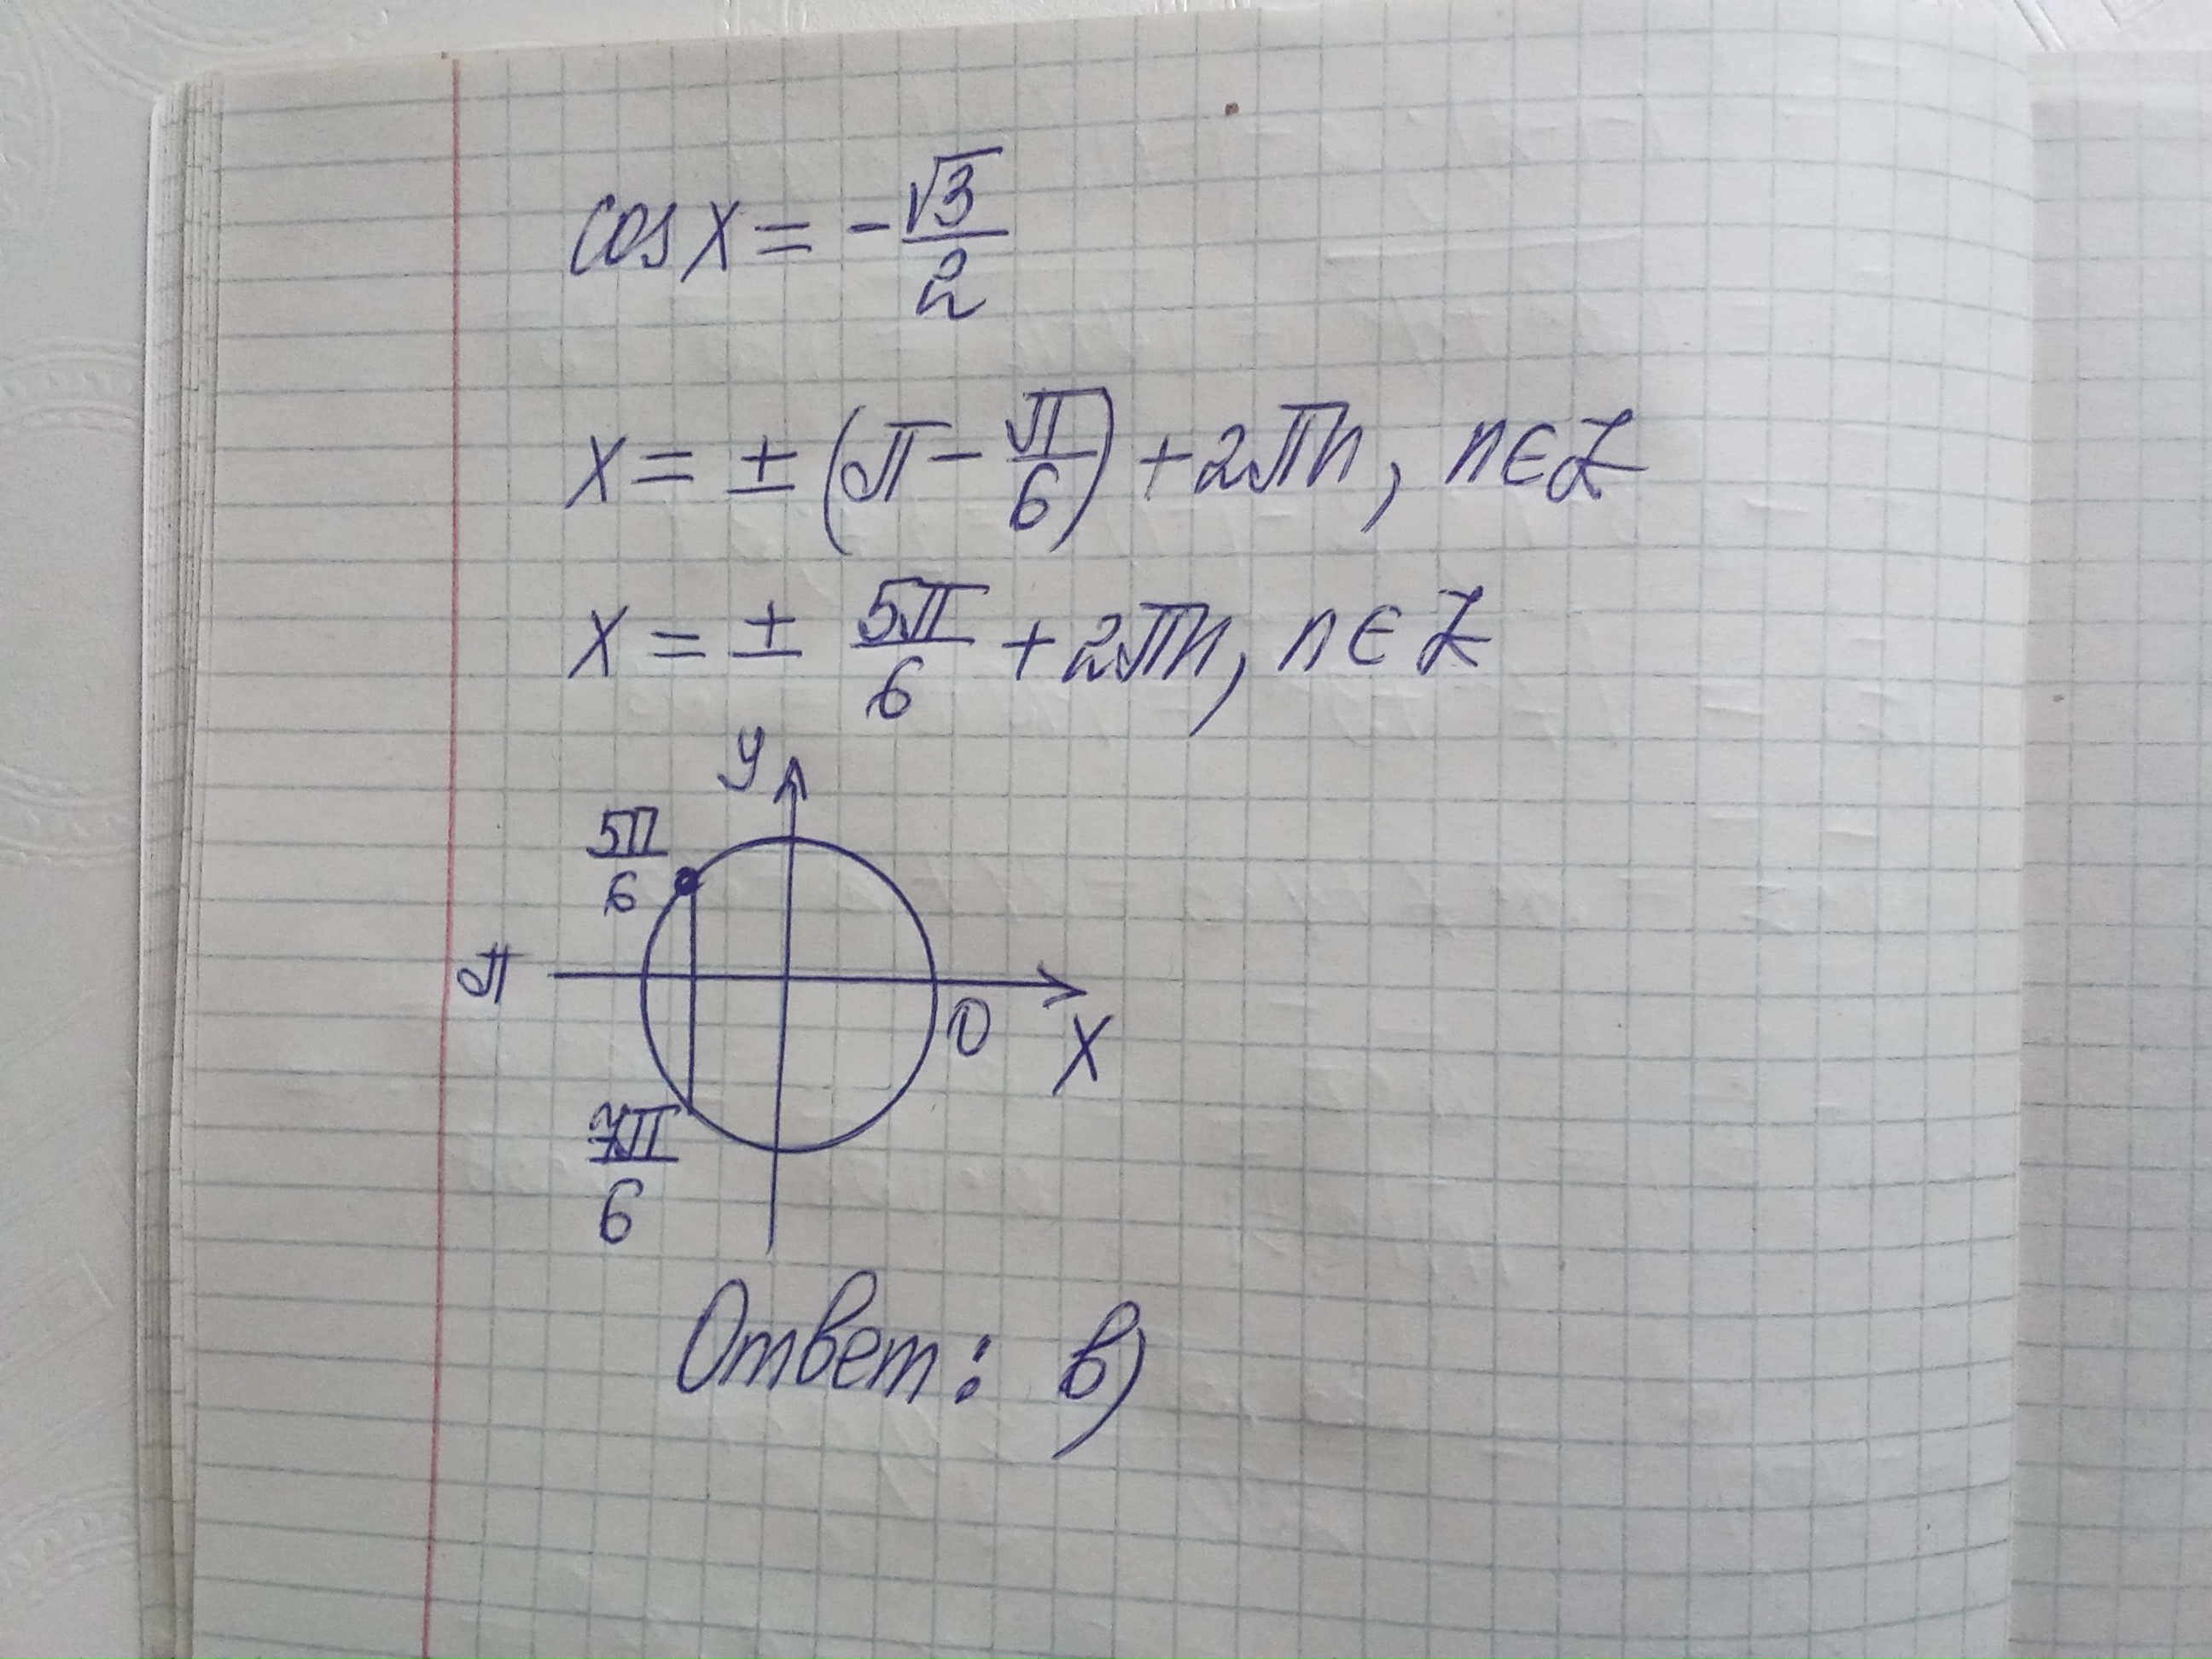 cos x = -√3/2
x = ± (π - π/6) + 2πn, n ∈ Z
x = ± 5π/6 + 2πn, n ∈ Z
y
5π/6
π
0
x
7π/6
Ответ: в)